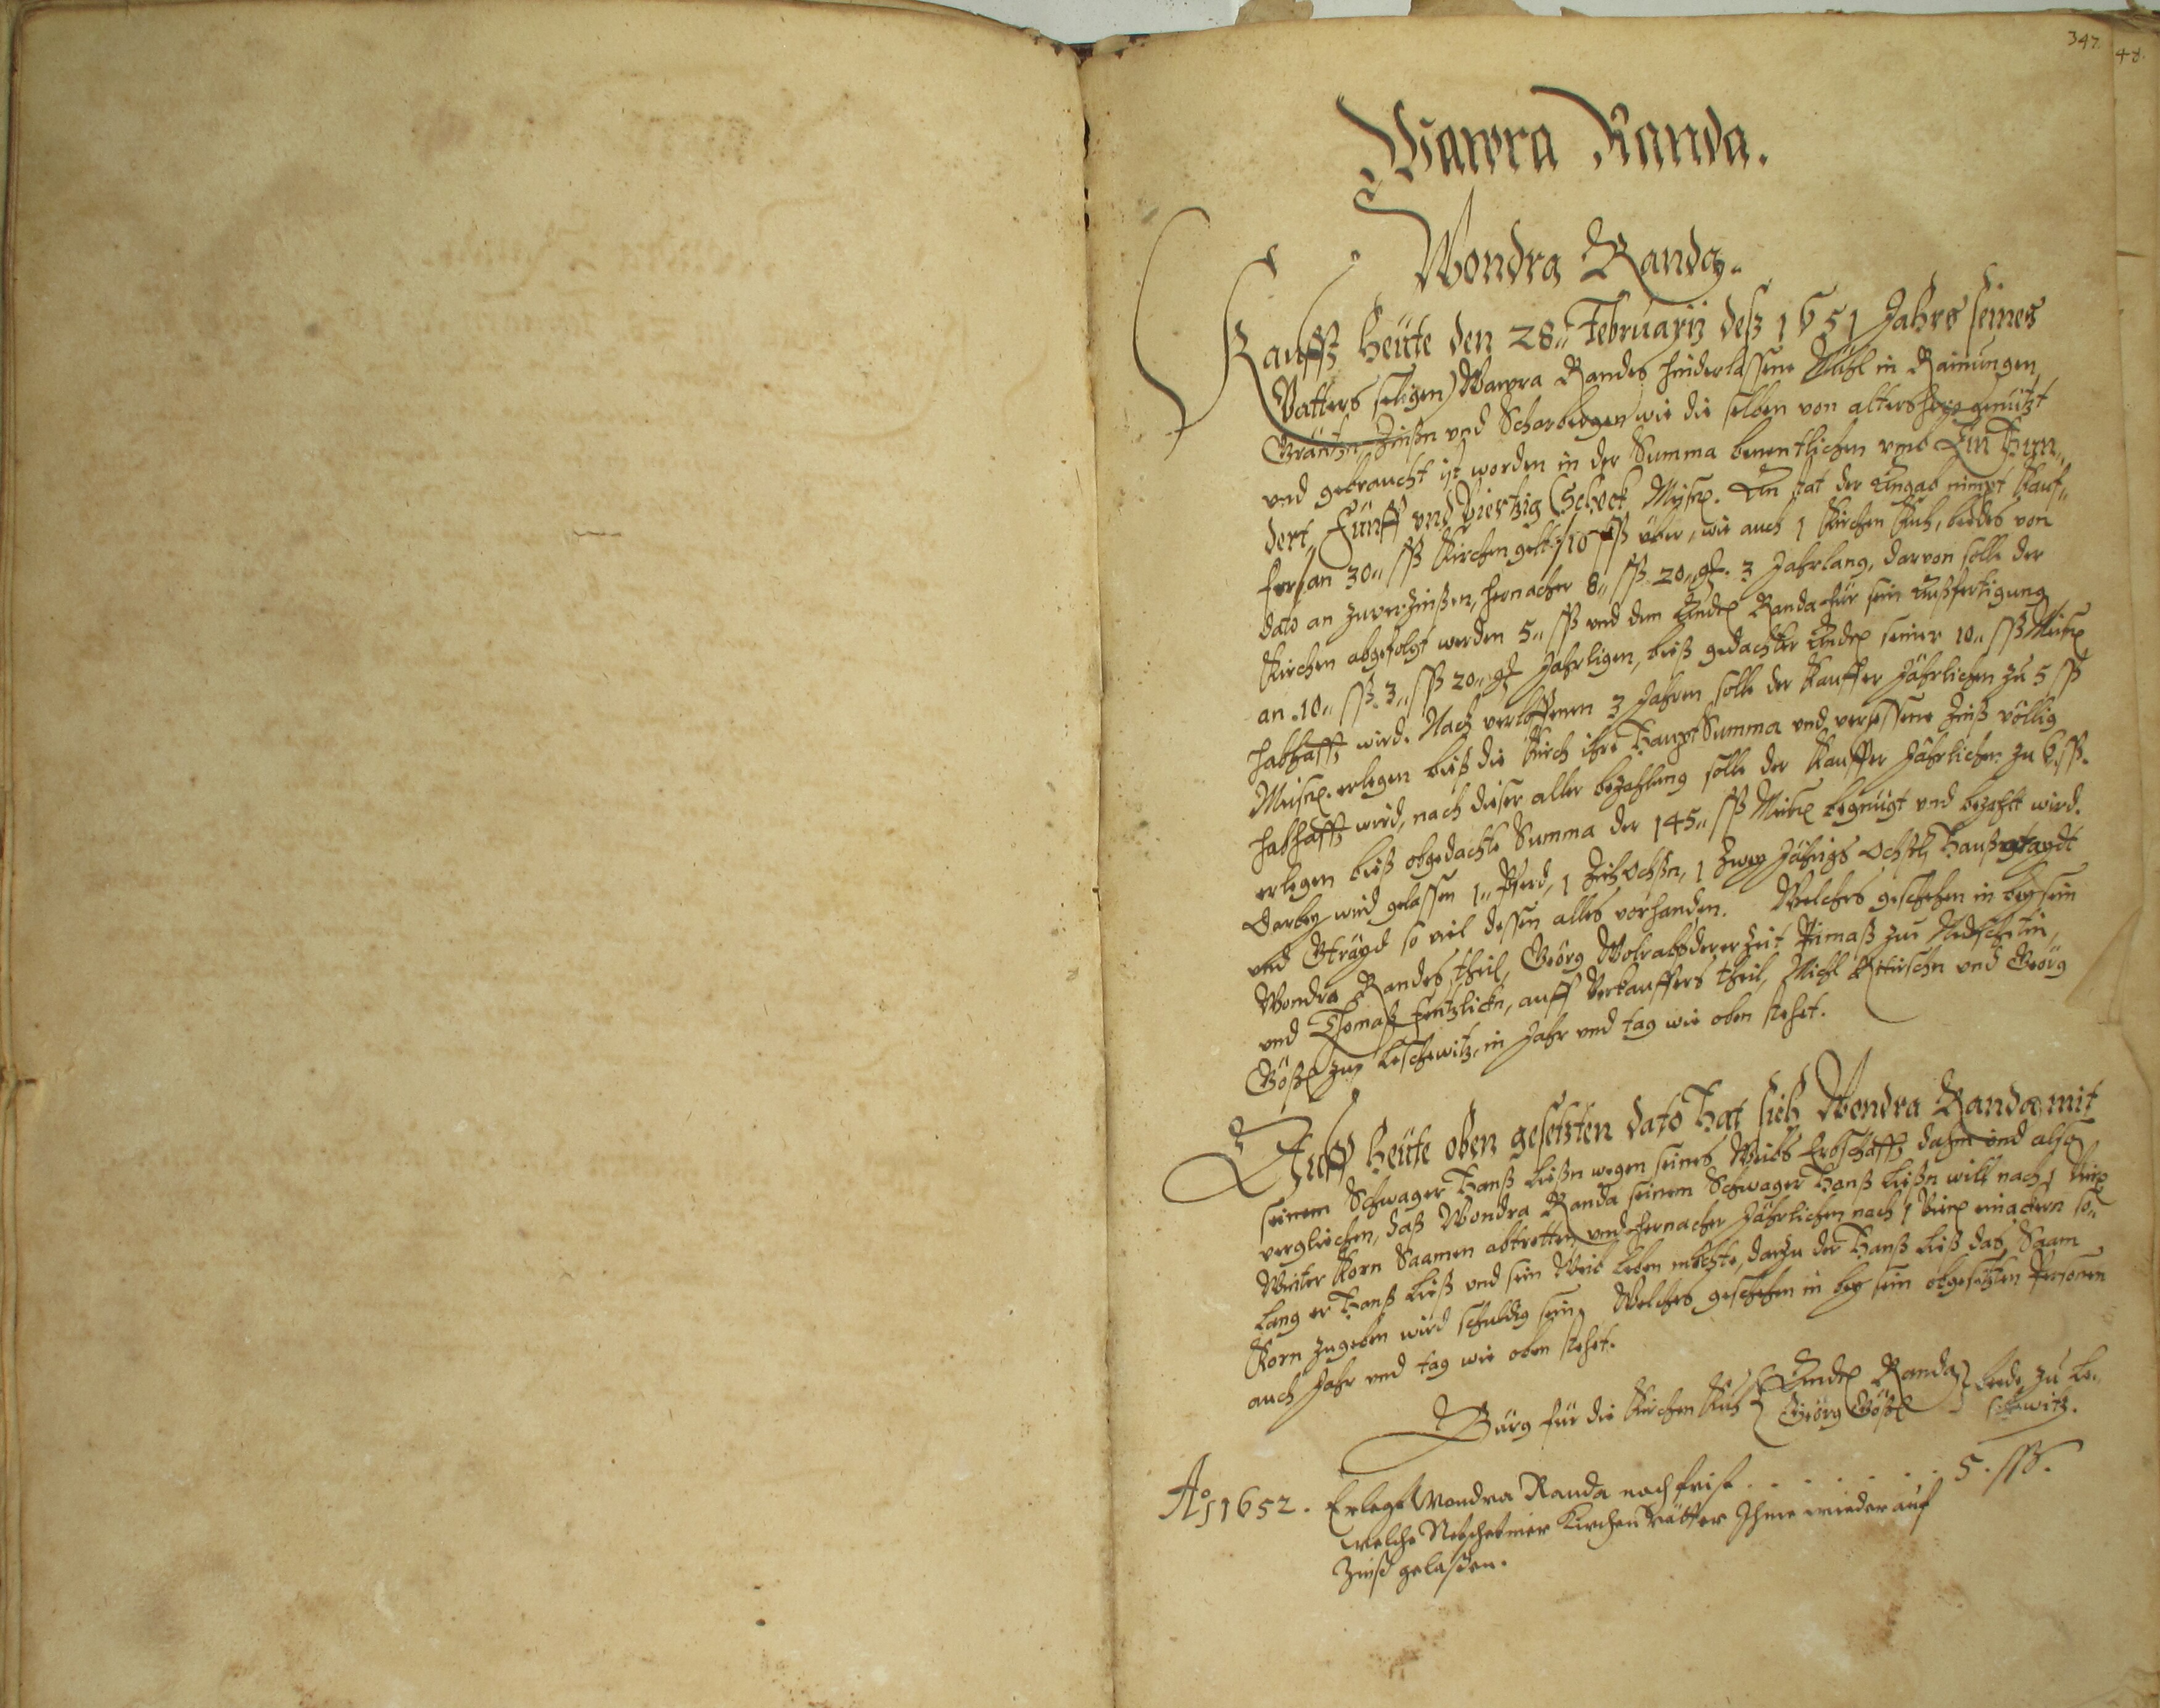 347.
48.
Wawra Randa.
Wondra Randa.
Kaufft heüte den 28ten Februarij deß 1651 Jahrs seines
Vatters seligen Wawra Randes hinderlassene Mühl in Rainungen
Gräntzen, Zinßen vnd Scharbergen wie die selben von altershero genützt
vnd gebraucht ist worden in der Summa benentlichen vmb Ein Hun„
dert„ Fünff vnd Viertzig Schock Meißn. An stat der Angab nimpt Kauf„
fer an 30„ ßß Kirchen gelt 10 ßß über, wie auch 1 Kirchen Kuh, beedes von
dato an zuverzinßen, hernacher 8„ ßß 20„ gr 3 Jahrlang, darvon solle der
Kirchen abgefolgt werden 5„ ßß vnd dem Andre Randa für sein Außfertigung
an 10„ ßß 3„ ßß 20„ gr Jahrligen, biß gedachter Andre seiner 10„ ßß Meißn
habhafft wird. Nach verloffenen 3 Jahren solle der Kauffer Jährlichen zu 5 ßß
Meißn. erlegen biß die Kirch ihre Haupt Summa vnd versessene Zinß völlig
habhafft wird, nach dieser aller bezahlung solle der Kauffer Jährlichen zu 6 ßß.
erlegen biß obgedachte Summa der 145„ ßß Meißn begnügt vnd bezahlt wird.
Darbey wird gelassen 1„ Pferd, 1 Zich Ochßn, 1 Zwey Jährigs Ochsl,
vnd Gträyd so viel dessen alles vorhanden. Welches geschehen in beysein
Wondra Randes theil, Georg dererzeit zu
vnd Thomaß auff Verkauffers theil, Michl vnd Georg
zu Leschowitz, in Jahr vnd tag wie oben stehet.
Auff heüte oben gesetzten dato hat sich Wondra Randa mit
seinem Schwager Hanß Lißn wegen seines Weibs Erbschafft dahin vnd also
verglichen, daß Wondra Randa seinem Schwager Hanß Lißn will nach 1
Winter Korn Saamen abtretten, vnd hernacher Jährlichen nach 1 einackern so„
lang er Hanß Liß vnd sein Weib leben möchte, darzu der Hanß Liß das Saam
Korn zugeben wird schuldig sein, Welches geschehen in bey sein obgesetzten Personen
auch Jahr vnd tag wie oben stehet.
Bürg für die Kirchen Kuh Andre Randa beede zu Le„
Georg schowitz.
Ao 1652. Erlegt Wondra Randa nach frist . . . . . . . 5. ßß.
welche Netschetiner Kirchen Vätter Ihme wieder auf
Zinß gelaßen.